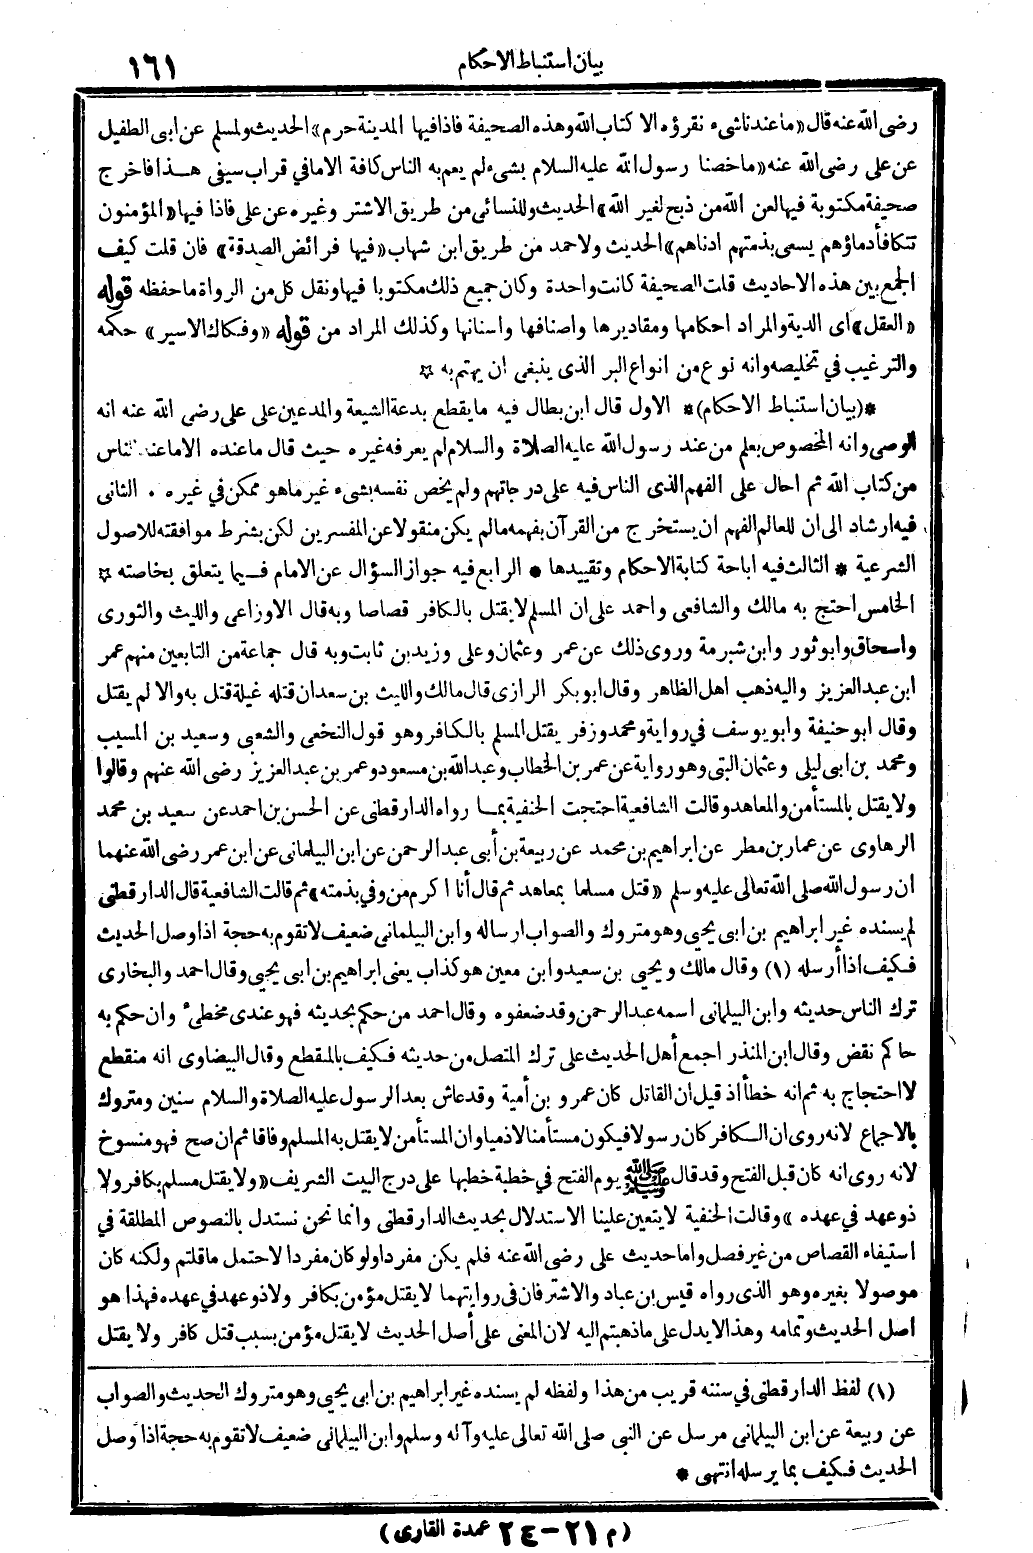 بيان استنباط الاحكام
١٦١
رضى الله عنه قال «ما عندنا شىء نقرؤه الا كتاب الله وهذه الصحيفة فاذا فيها المدينة حرم» الحديث ولمسلم عن ابى الطفيل
عن على رضى الله عنه «ما خصنا رسول الله عليه السلام بشىء لم يعم به الناس كافة الا ما في قراب سيفى هــذا فاخرج
صحيفة مكتوبة فيها لعن الله من ذبح لغير الله» الحديث وللنسائى من طريق الاشتر وغيره عن على فاذا فيها «المؤمنون
تتكافأ دماؤهم يسعى بذمتهم ادناهم» الحديث ولاحمد من طريق ابن شهاب «فيها فرائض الصدقة» فان قلت كيف
الجمع بين هذه الاحاديث قلت الصحيفة كانت واحدة وكان جميع ذلك مكتوبا فيها ونقل كل من الرواة ما حفظه قوله
«العقل» اى الدية والمراد احكامها ومقاديرها واصنافها واسنانها وكذلك المراد من قوله «وفكاك الاسير» حكمه
والترغيب في تخليصه وانه نوع من انواع البر الذى ينبغى ان يهتم به ☆
*(بيان استنباط الاحكام)* الاول قال ابن بطال فيه ما يقطع بدعة الشيعة والمدعين على على رضى الله عنه انه
الوصى وانه المخصوص بعلم من عند رسول الله عليه الصلاة والسلام لم يعرفه غيره حيث قال ما عنده الا ما عند الناس
من كتاب الله ثم احال على الفهم الذى الناس فيه على درجاتهم ولم يخص نفسه بشىء غير ما هو ممكن في غيره . الثانى
فيه ارشاد الى ان للعالم الفهم ان يستخرج من القرآن بفهمه ما لم يكن منقولا عن المفسرين لكن بشرط موافقته للاصول
الشرعية * الثالث فيه اباحة كتابة الاحكام وتقييدها * الرابع فيه جواز السؤال عن الامام فــيما يتعلق بخاصته ☆
الخامس احتج به مالك والشافعى واحمد على ان المسلم لا يقتل بالكافر قصاصا وبه قال الاوزاعى والليث والثورى
واسحاق وابو ثور وابن شبرمة وروى ذلك عن عمر وعثمان وعلى وزيد بن ثابت وبه قال جماعة من التابعين منهم عمر
ابن عبد العزيز واليه ذهب اهل الظاهر وقال ابو بكر الرازى قال مالك والليث بن سعد ان قتله غيلة قتل به والا لم يقتل
وقال ابو حنيفة وابو يوسف في رواية ومحمد وزفر يقتل المسلم بالكافر وهو قول النخعى والشعبى وسعيد بن المسيب
ومحمد بن ابى ليلى وعثمان البتى وهو رواية عن عمر بن الخطاب وعبد الله بن مسعود وعمر بن عبد العزيز رضى الله عنهم وقالوا
ولا يقتل بالمستأمن والمعاهد وقالت الشافعية احتجت الحنفية بمــا رواه الدارقطنى عن الحسن بن احمد عن سعيد بن محمد
الرهاوى عن عمار بن مطر عن ابراهيم بن محمد عن ربيعة بن أبى عبد الرحمن عن ابن البيلمانى عن ابن عمر رضى الله عنهما
ان رسول الله صلى الله تعالى عليه وسلم «قتل مسلما بمعاهد ثم قال أنا اكرم من وفي بذمته» ثم قالت الشافعية قال الدارقطنى
لم يسنده غير ابراهيم بن ابى يحيى وهو متروك والصواب ارساله وابن البيلمانى ضعيف لا تقوم به حجة اذا وصل الحديث
فكيف اذا أرسله (١) وقال مالك ويحيى بن سعيد وابن معين هو كذاب يعنى ابراهيم بن ابى يحيى وقال احمد والبخارى
ترك الناس حديثه وابن البيلمانى اسمه عبد الرحمن وقد ضعفوه وقال احمد من حكم بحديثه فهو عندى مخطئ وان حكم به
حاكم نقض وقال ابن المنذر اجمع أهل الحديث على ترك المتصل من حديثه فكيف بالمنقطع وقال البيضاوى انه منقطع
لا احتجاج به ثم انه خطأ اذ قيل ان القاتل كان عمرو بن أمية وقد عاش بعد الرسول عليه الصلاة والسلام سنين ومتروك
بالاجماع لانه روى ان الــكافر كان رسولا فيكون مستأمنا لا ذميا وان المستأمن لا يقتل به المسلم وفاقا ثم ان صح فهو منسوخ
لانه روى انه كان قبل الفتح وقد قال ﷺ يوم الفتح في خطبة خطبها على درج البيت الشريف «ولا يقتل مسلم بكافر ولا
ذو عهد في عهده» وقالت الحنفية لا يتعين علينا الاستدلال بحديث الدارقطنى وانما نحن نستدل بالنصوص المطلقة في
استيفاء القصاص من غير فصل واما حديث على رضى الله عنه فلم يكن مفردا ولو كان مفردا لاحتمل ما قلتم ولكنه كان
موصولا بغيره وهو الذى رواه قيس بن عباد والاشتر فان في روايتهما لا يقتل مؤمن بكافر ولا ذو عهد في عهده فهذا هو
اصل الحديث وتمامه وهذا لا يدل على ما ذهبتم اليه لان المعنى على أصل الحديث لا يقتل مؤمن بسبب قتل كافر ولا يقتل
(١) لفظ الدارقطنى في سننه قريب من هذا ولفظه لم يسنده غير ابراهيم بن ابى يحيى وهو متروك الحديث والصواب
عن ربيعة عن ابن البيلمانى مرسل عن النبى صلى الله تعالى عليه وآله وسلم وابن البيلمانى ضعيف لا تقوم به حجة اذا وصل
الحديث فكيف بما يرسله انتهى *
(م ٢١–٢٤ عمدة القارى)